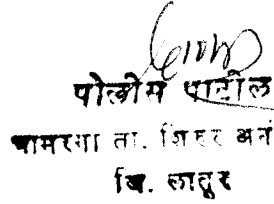 पोलीस पाटील
चामरगा ता. शिरुर अनं
जि. लातुर